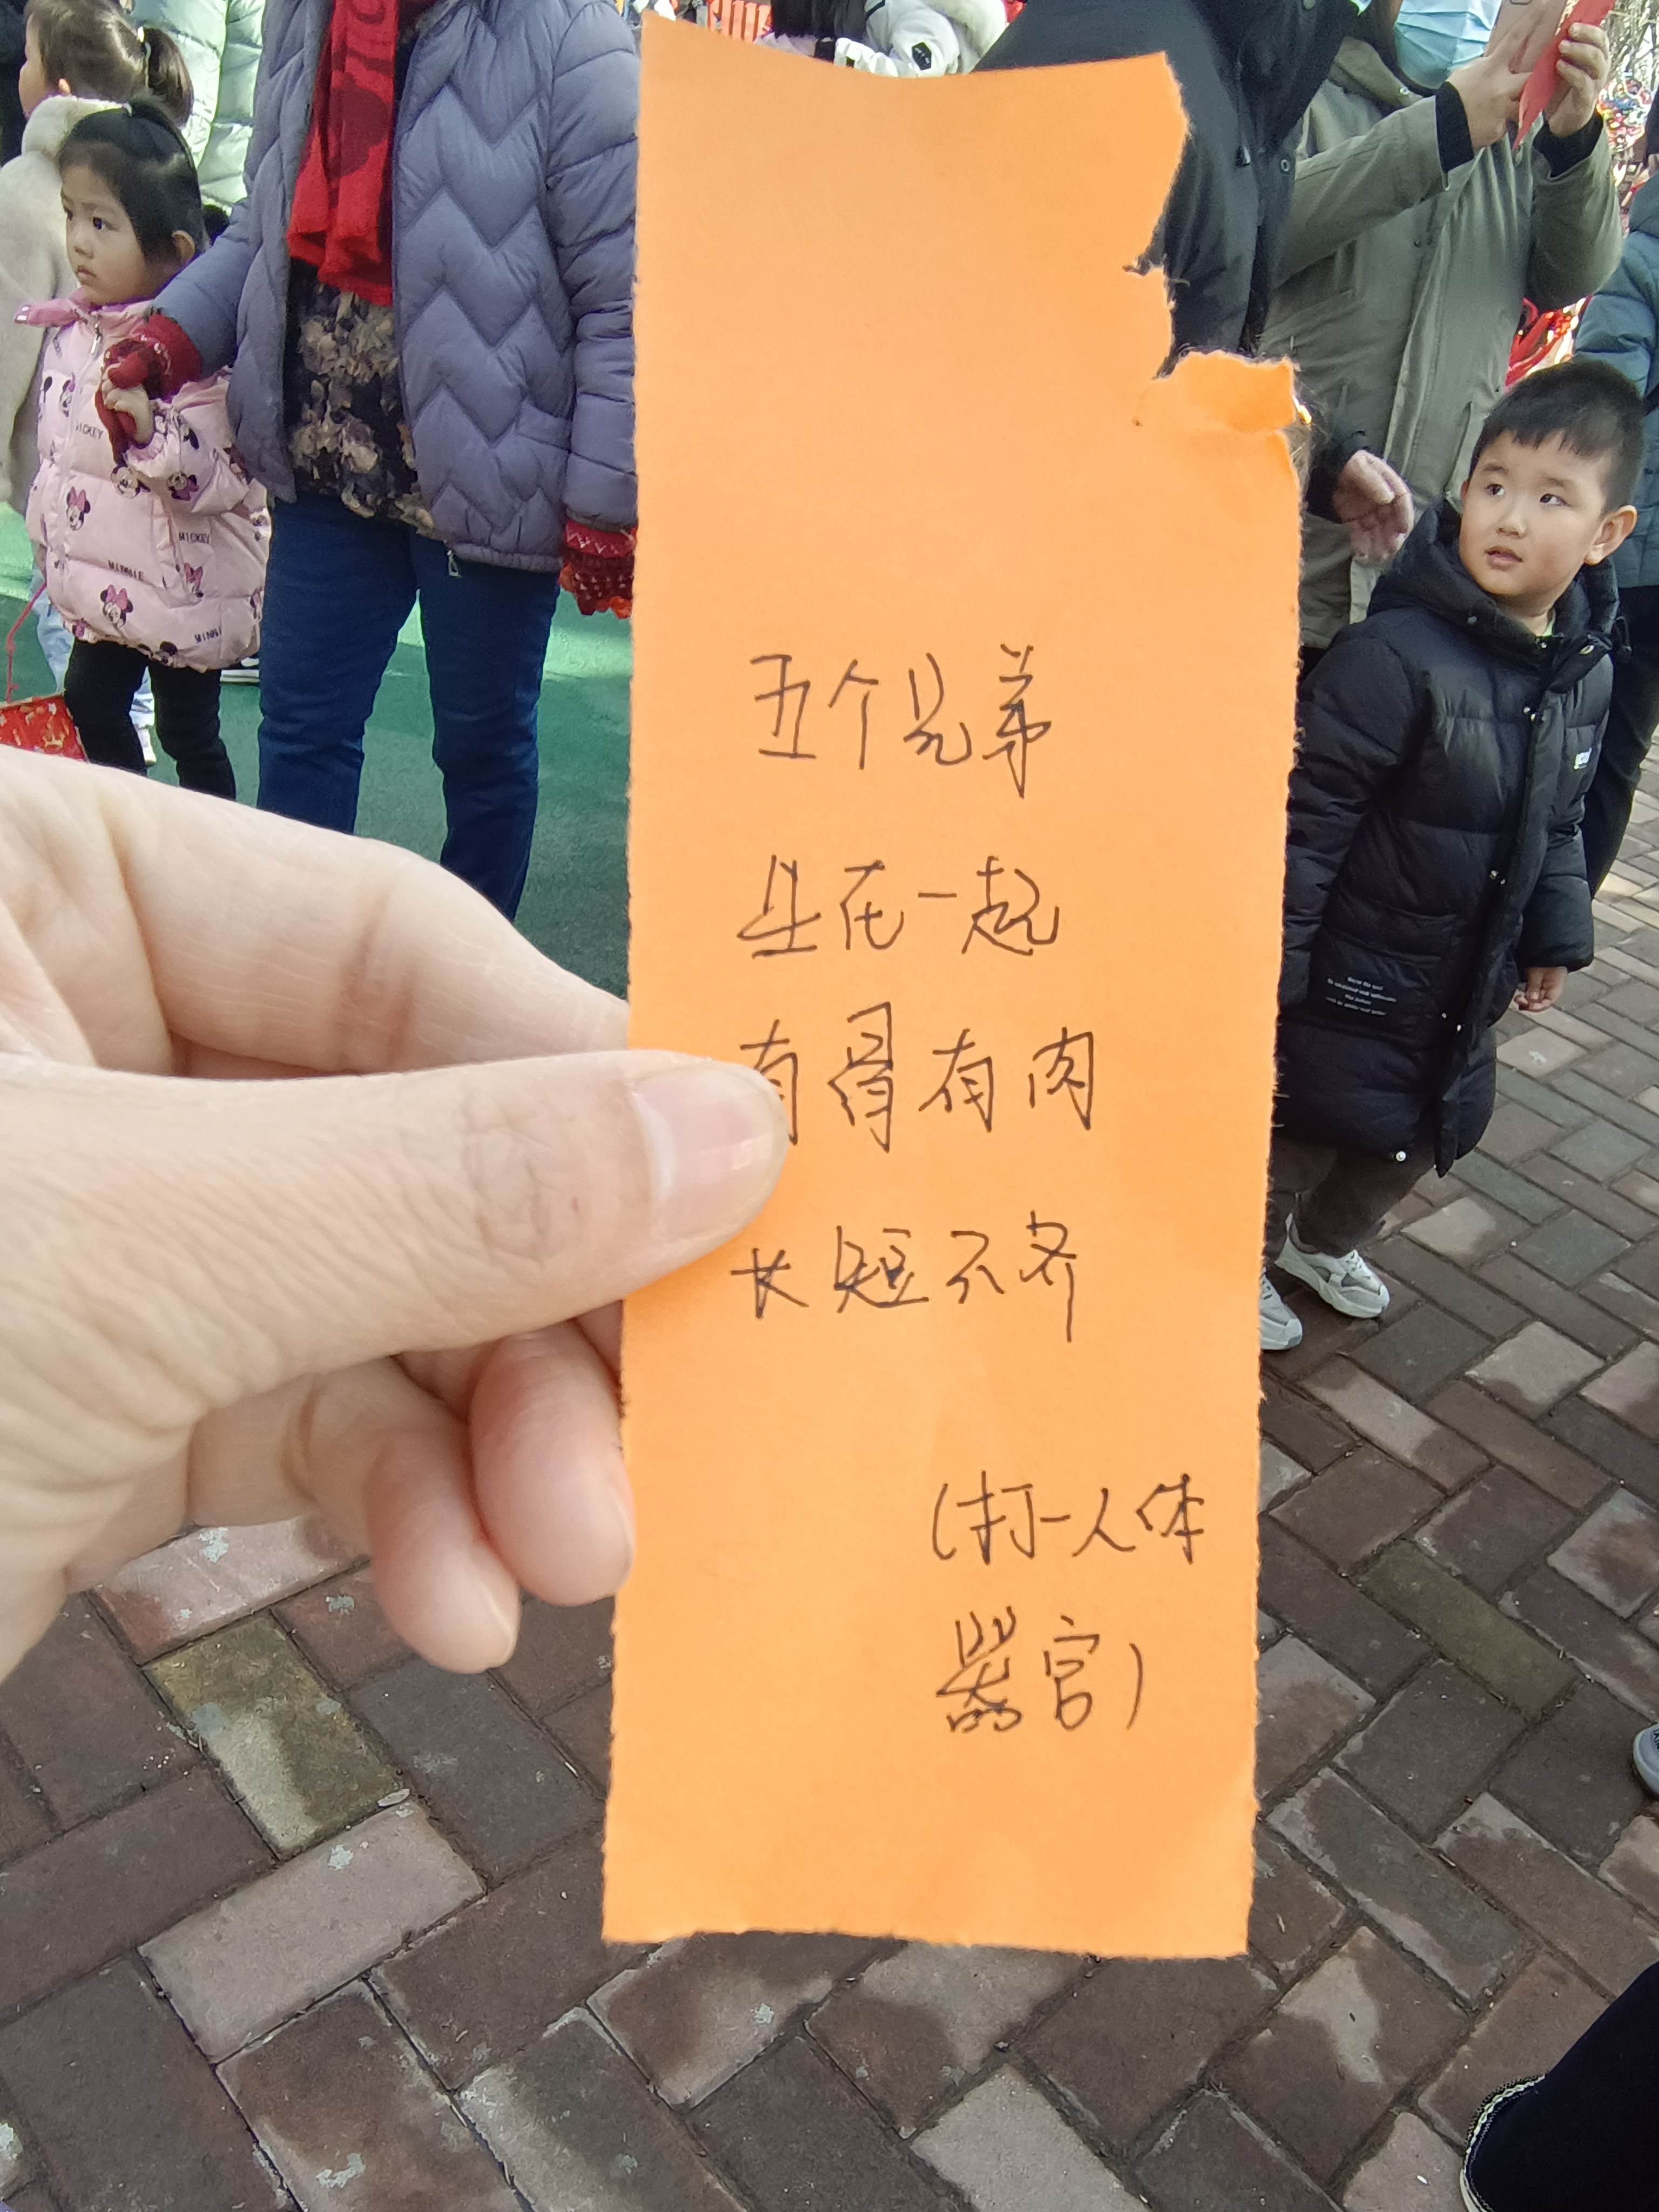 五个兄弟
生在一起
有骨有肉
长短不齐
(打一人体
器官)
MICKEY
MICKEY
MINNIE